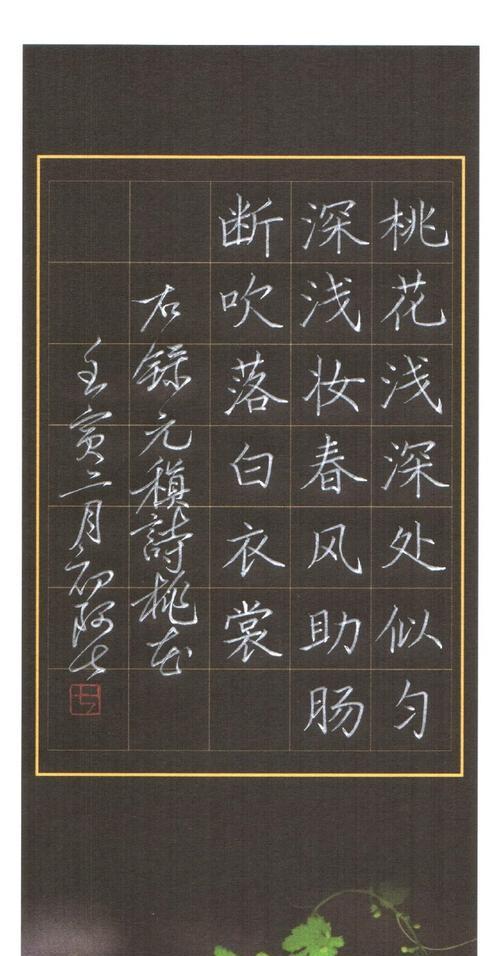 桃花浅深处似匀
深浅妆春风助肠
断吹落白衣裳
右録元稹詩桃花
壬寅二月初阿七
七